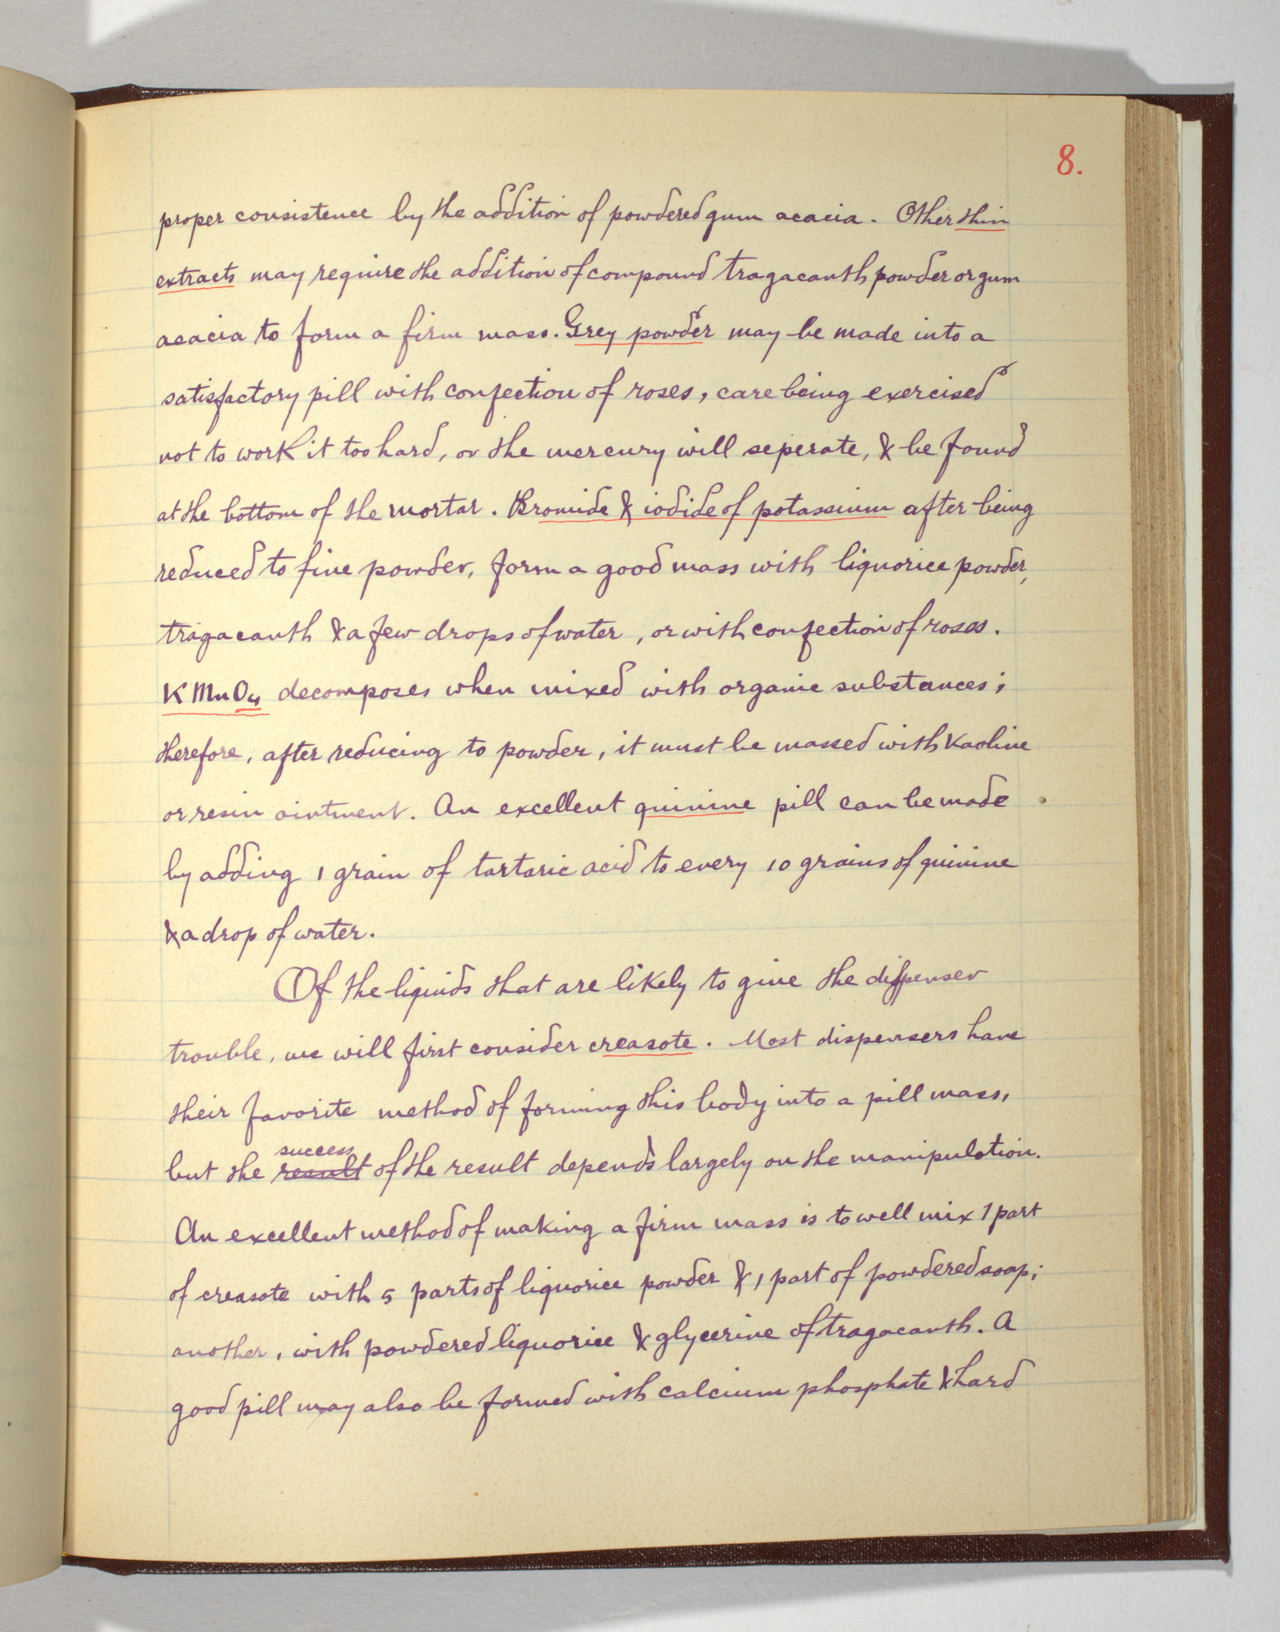 8.
proper consistence by the addition of powdered gum acacia. Other thin
extracts may require the addition of compound tragacanth powder or gum
acacia to form a firm mass. Grey powder may be made into a
satisfactory pill with confection of roses, care being exercised
not to work it too hard, or the mercury will seperate, & be found
at the bottom of the mortar. Bromide & iodide of potassium after being
reduced to fine powder, form a good mass with liquorice powder,
tragacanth & a few drops of water, or with confection of roses.
KMnO4 decomposes when mixed with organic substances;
therefore, after reducing to powder, it must be massed with Kaoline
or resin ointment. An excellent quinine pill can be made
by adding 1 grain of tartaric acid to every 10 grains of quinine
& a drop of water.
Of the liquids that are likely to give the dispenser
trouble, we will first consider creasote. Most dispensers have
their favorite method of forming this body into a pill mass,
success
but the result of the result depends largely on the manipulation.
An excellent method of making a firm mass is to well mix 1 part
of creasote with 5 parts of liquorice powder & 1 part of powdered soap;
another, with powdered liquorice & glycerine of tragacanth. A
good pill may also be formed with calcium phosphate & hard